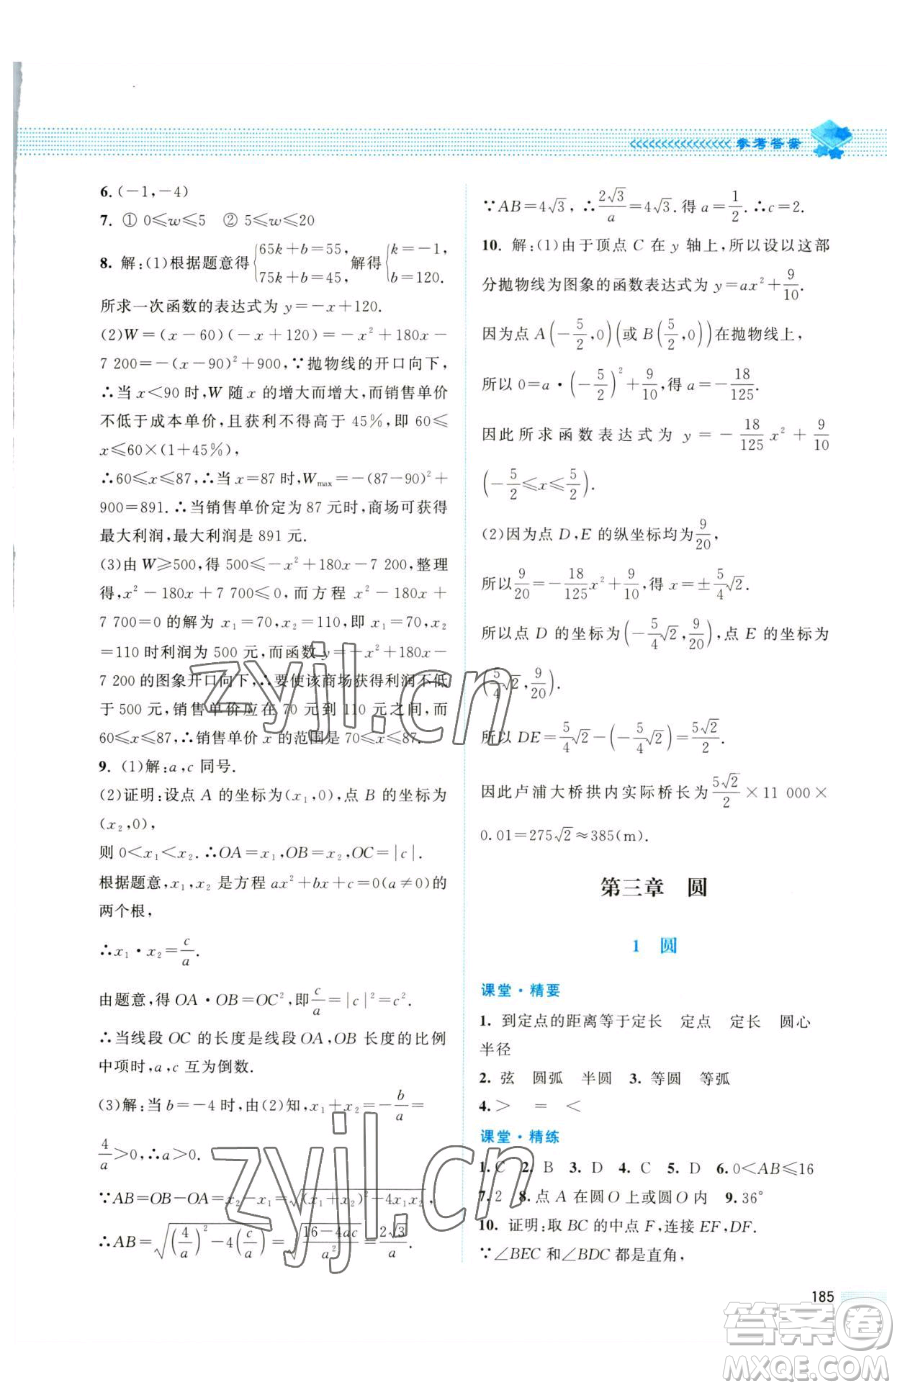 参考答案
6. (-1,-4)
7. ① 0≤w≤5 ② 5≤w≤20
8. 解:(1)根据题意得{65k+b=55, 75k+b=45, 解得{k=-1, b=120.
所求一次函数的表达式为 y=-x+120.
(2)W=(x-60)(-x+120)=-x²+180x-
7 200=-(x-90)²+900,∵抛物线的开口向下,
∴当 x<90 时,W 随 x 的增大而增大,而销售单价
不低于成本单价,且获利不得高于 45%,即 60≤
x≤60×(1+45%)
∴60≤x≤87,∴当 x=87 时,Wmax=-(87-90)²+
900=891. ∴当销售单价定为 87 元时,商场可获得
最大利润,最大利润是 891 元.
(3)由 W≥500,得 500≤-x²+180x-7 200,整理
得, x²-180x+7 700≤0, 而方程 x²-180x+
7 700=0 的解为 x₁=70,x₂=110,即 x=70,x
=110 时利润为 500 元,而函数 y=-x²+180x-
7 200 的图象开口向下,∴要使该商场获得利润不低
于 500 元,销售单价应在 70 元到 110 元之间,而
60≤x≤87,∴销售单价 x 的范围是 70≤x≤87.
9. (1)解:a,c 同号.
(2)证明:设点 A 的坐标为(x₁,0),点 B 的坐标为
(x₂,0),
则 0<x₁<x₂. ∴OA=x₁,OB=x₂,OC=|c|.
根据题意,x₁,x₂是方程 ax²+bx+c=0(a≠0)的
两个根,
∴x₁·x₂=c/a.
由题意,得 OA·OB=OC²,即c/a=|c|²=c².
∴当线段 OC 的长度是线段 OA,OB 长度的比例
中项时,a,c 互为倒数.
(3)解:当 b=-4 时,由(2)知,x₁+x₂=-b/a=
4/a>0,∴a>0.
∵AB=OB-OA=x₂-x₁=√((x₁+x₂)²-4x₁x₂),
∴AB=√((4/a)²-4(c/a))=√((16-4ac)/a²)=2√3/a.
∵AB=4√3, ∴2√3/a=4√3. 得 a=1/2. ∴c=2.
10. 解:(1)由于顶点 C 在 y 轴上,所以设以这部
分抛物线为图象的函数表达式为 y=ax²+9/10.
因为点 A(-5/2,0)(或 B(5/2,0))在抛物线上,
所以 0=a·(-5/2)²+9/10,得 a=-18/125.
因此所求函数表达式为 y=-18/125x²+9/10
(-5/2≤x≤5/2).
(2)因为点 D,E 的纵坐标均为9/20,
所以9/20=-18/125x²+9/10,得 x=±5/4√2.
所以点 D 的坐标为(-5/4√2,9/20),点 E 的坐标为
(5/4√2,9/20).
所以 DE=5/4√2-(-5/4√2)=5√2/2.
因此卢浦大桥拱内实际桥长为5√2/2×11 000×
0.01=275√2≈385(m).
第三章 圆
1 圆
课堂·精要
1. 到定点的距离等于定长 定点 定长 圆心
半径
2. 弦 圆弧 半圆 3. 等圆 等弧
4. > = <
课堂·精练
1. C 2. B 3. D 4. D 5. C 6. 0<AB≤16
7. 2 8. 点 A 在圆 O 上或圆 O 内 9. 36°
10. 证明:取 BC 的中点 F,连接 EF,DF.
∵∠BEC 和∠BDC 都是直角,
185
zyjl.cn
zyjl.cn
答案圈
MXQE.COM